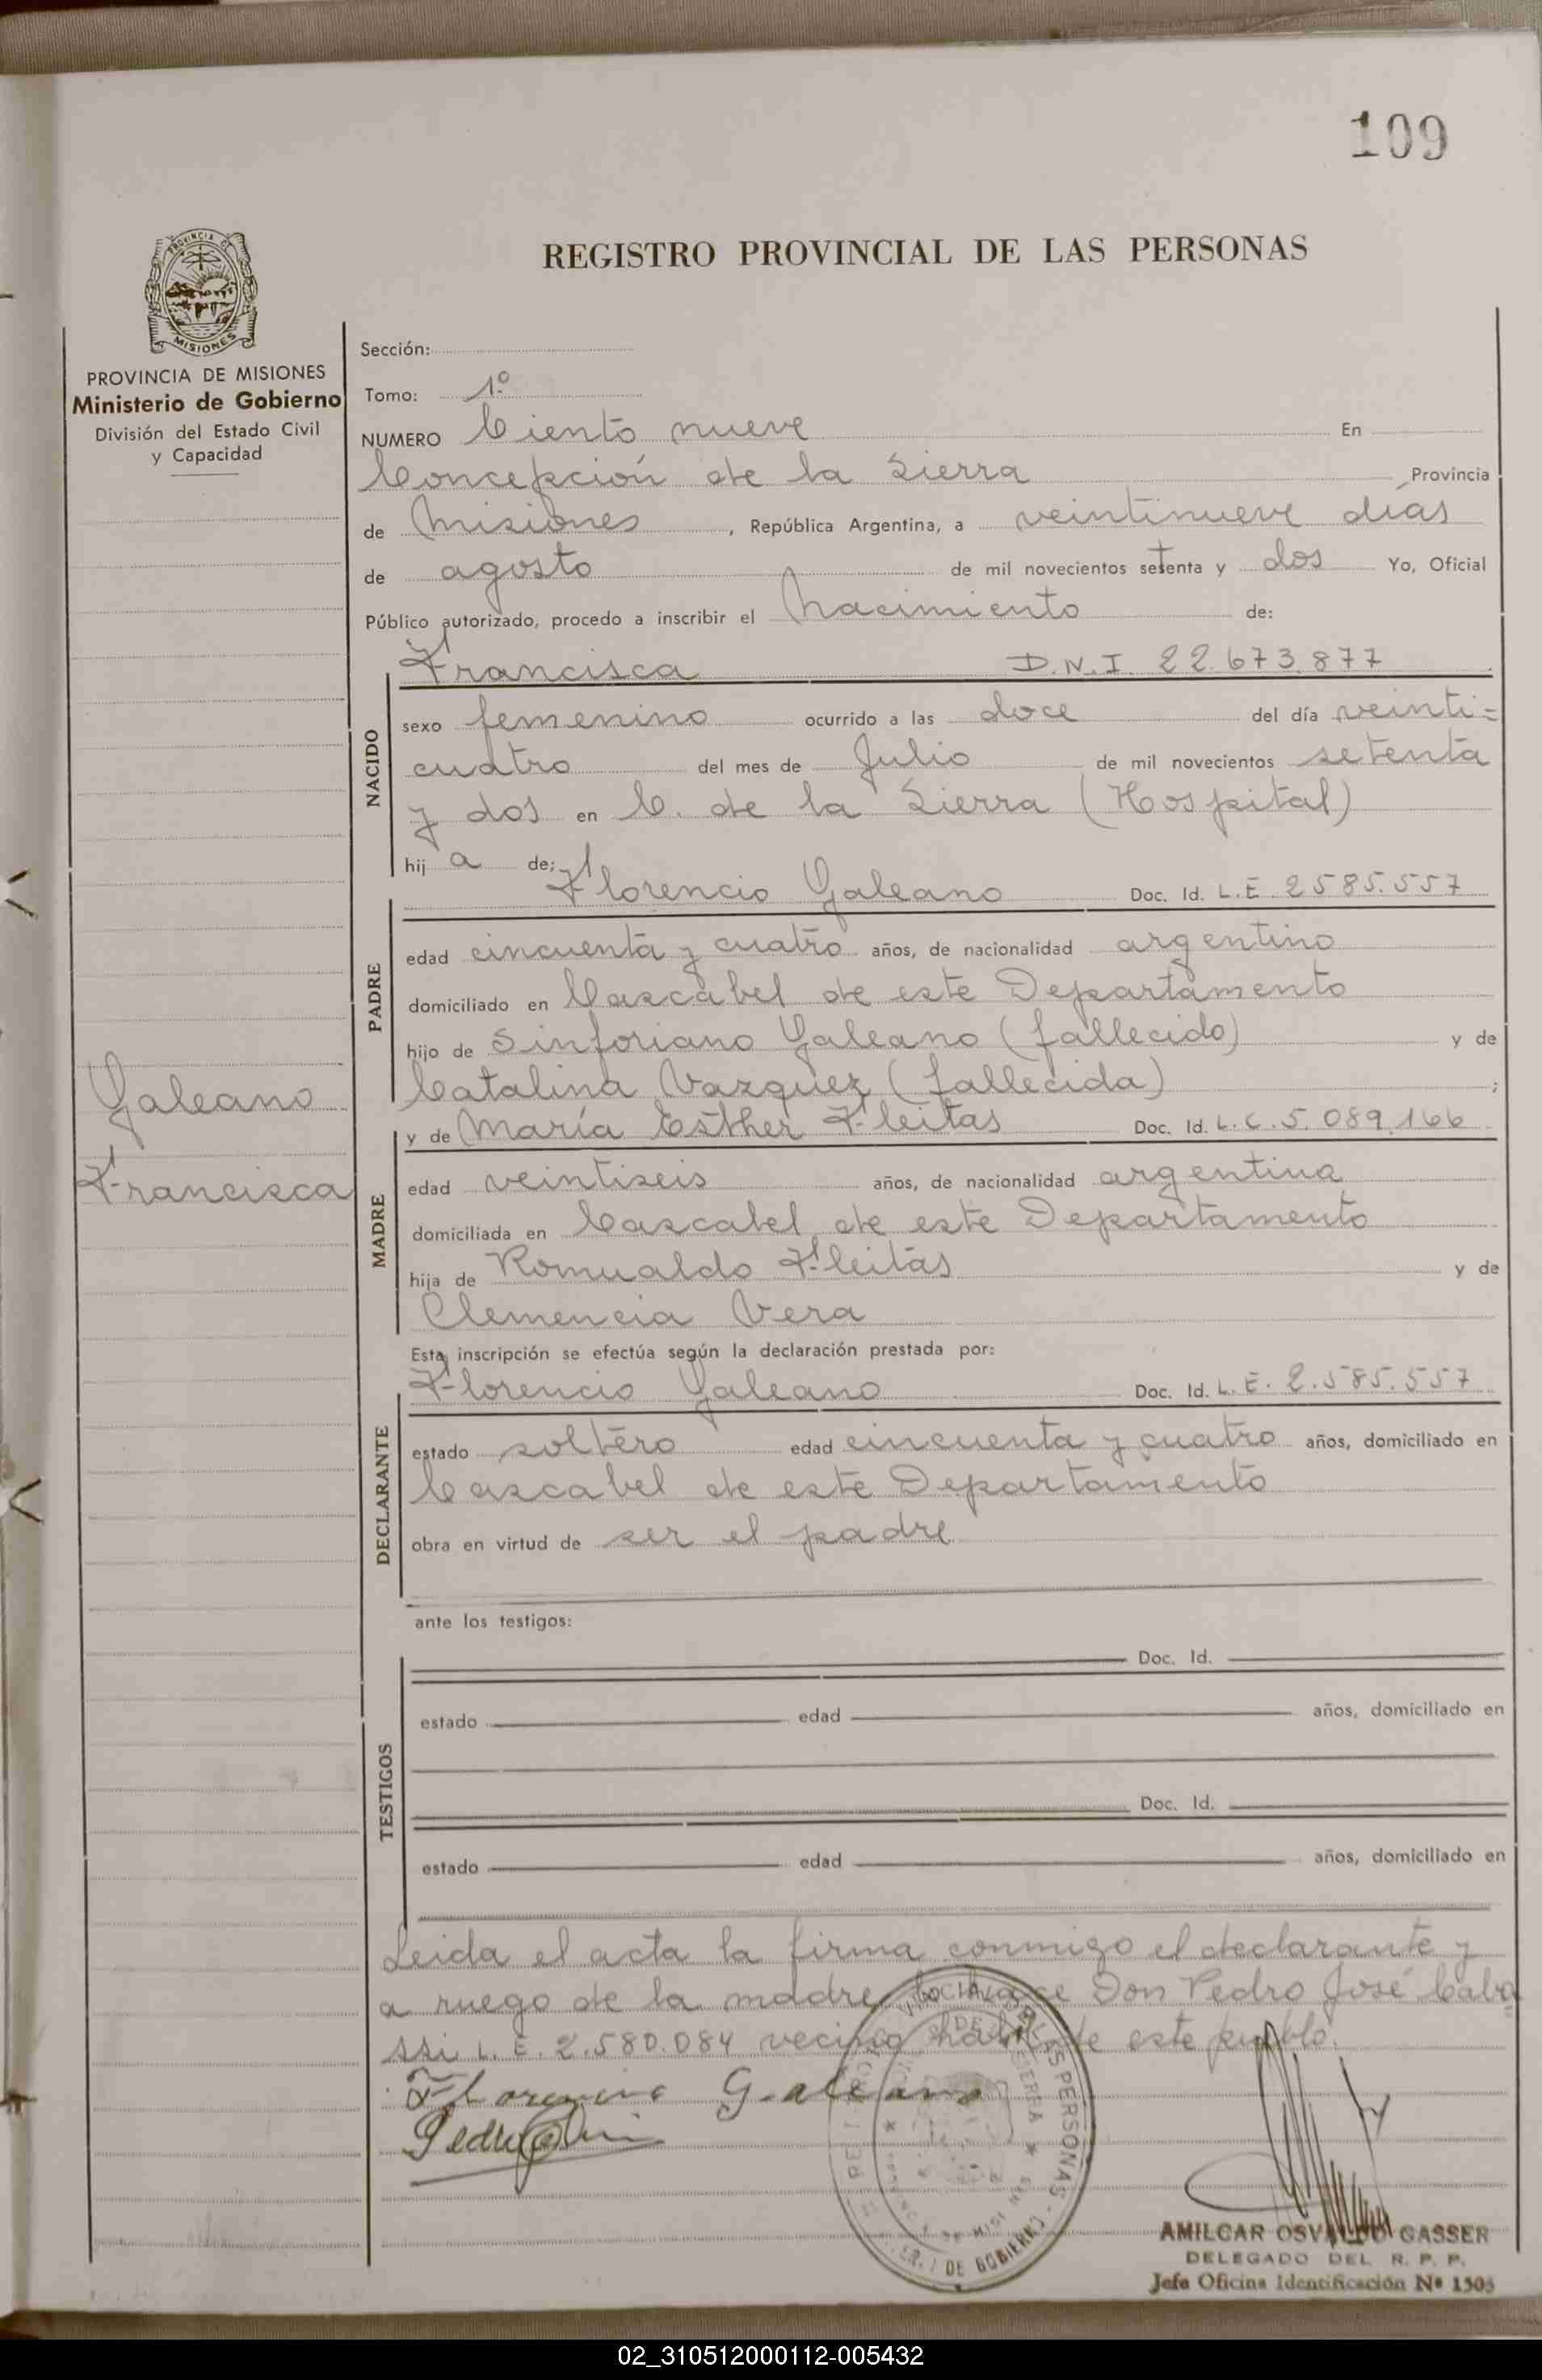 109
REGISTRO PROVINCIAL DE LAS PERSONAS
PROVINCIA DE
MISIONES
PROVINCIA DE MISIONES
Ministerio de Gobierno
División del Estado Civil
y Capacidad
Galeano
Francisca
Sección:
Tomo: 1º
NUMERO Ciento nueve En
Concepción de la Sierra Provincia
de Misiones, República Argentina, a veintinueve días
de agosto de mil novecientos setenta y dos Yo, Oficial
Público autorizado, procedo a inscribir el nacimiento de:
Francisca D.N.I 22.673.877
NACIDO
sexo femenino ocurrido a las doce del día veinti=
cuatro del mes de Julio de mil novecientos setenta
y dos en C. de la Sierra (Hospital)
hij a de:
Florencio Galeano Doc. Id. L.E 2585.557
PADRE
edad cincuenta y cuatro años, de nacionalidad argentino
domiciliado en Cascabel de este Departamento
hijo de Sinforiano Galeano (fallecido) y de
Catalina Vazquez (fallecida) ;
y de María Esther Fleitas Doc. Id. L.C.5.089.166
MADRE
edad veintiseis años, de nacionalidad argentina
domiciliada en Cascabel de este Departamento
hija de Romualdo Fleitas y de
Clemencia Vera
Esta inscripción se efectúa según la declaración prestada por:
Florencio Galeano Doc. Id. L.E. 2.585.557
DECLARANTE
estado soltero edad cincuenta y cuatro años, domiciliado en
Cascabel de este Departamento
obra en virtud de ser el padre
ante los testigos:
TESTIGOS
Doc. Id.
estado edad años, domiciliado en
Doc. Id.
estado edad años, domiciliado en
Leida el acta la firma conmigo el declarante y
a ruego de la madre lo hace Don Pedro José Cala
ssi L.E. 2.580.084 vecino habil de este pueblo.
Florencio Galeano
Pedro
PERSONAS
DE GOBIERNO
AMILCAR OSVALDO GASSER
DELEGADO DEL R. P. P.
Jefe Oficina Identificación Nº 1505
02_310512000112-005432